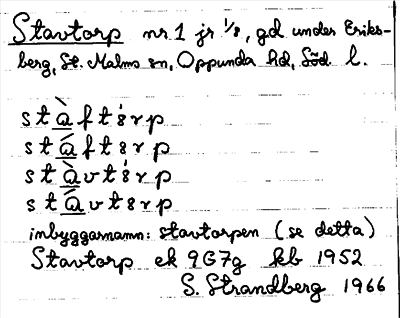 Stavtorp nr 1 jr 1/8, gd under Eriks-
berg, St. Malms sn, Oppunda hd, Söd l.
stàftȯrp
stáftȣrp
stàvtȯrp
stávtȣrp
inbyggarnamn: stavtorpen (se detta)
Stavtorp ek 9G7g kb 1952
S. Strandberg 1966